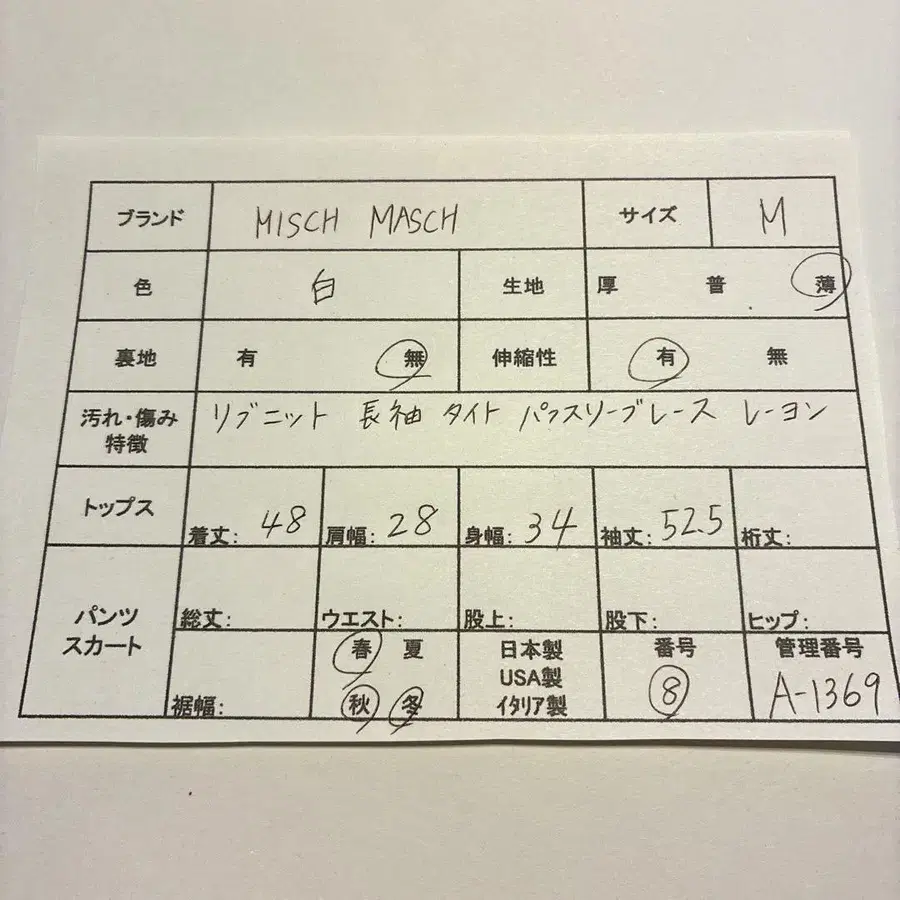 ブランド MISCH MASCH サイズ M
色 白 生地 厚 普 薄
裏地 有 無 伸縮性 有 無
汚れ・傷み リブニット 長袖 タイト パフスリーブレース レーヨン
特徴
トップス 着丈: 48 肩幅: 28 身幅: 34 袖丈: 52.5 桁丈:
パンツ 総丈: ウエスト: 股上: 股下: ヒップ:
スカート 春 夏 日本製 番号 管理番号
USA製
裾幅: 秋 冬 イタリア製 8 A-1369